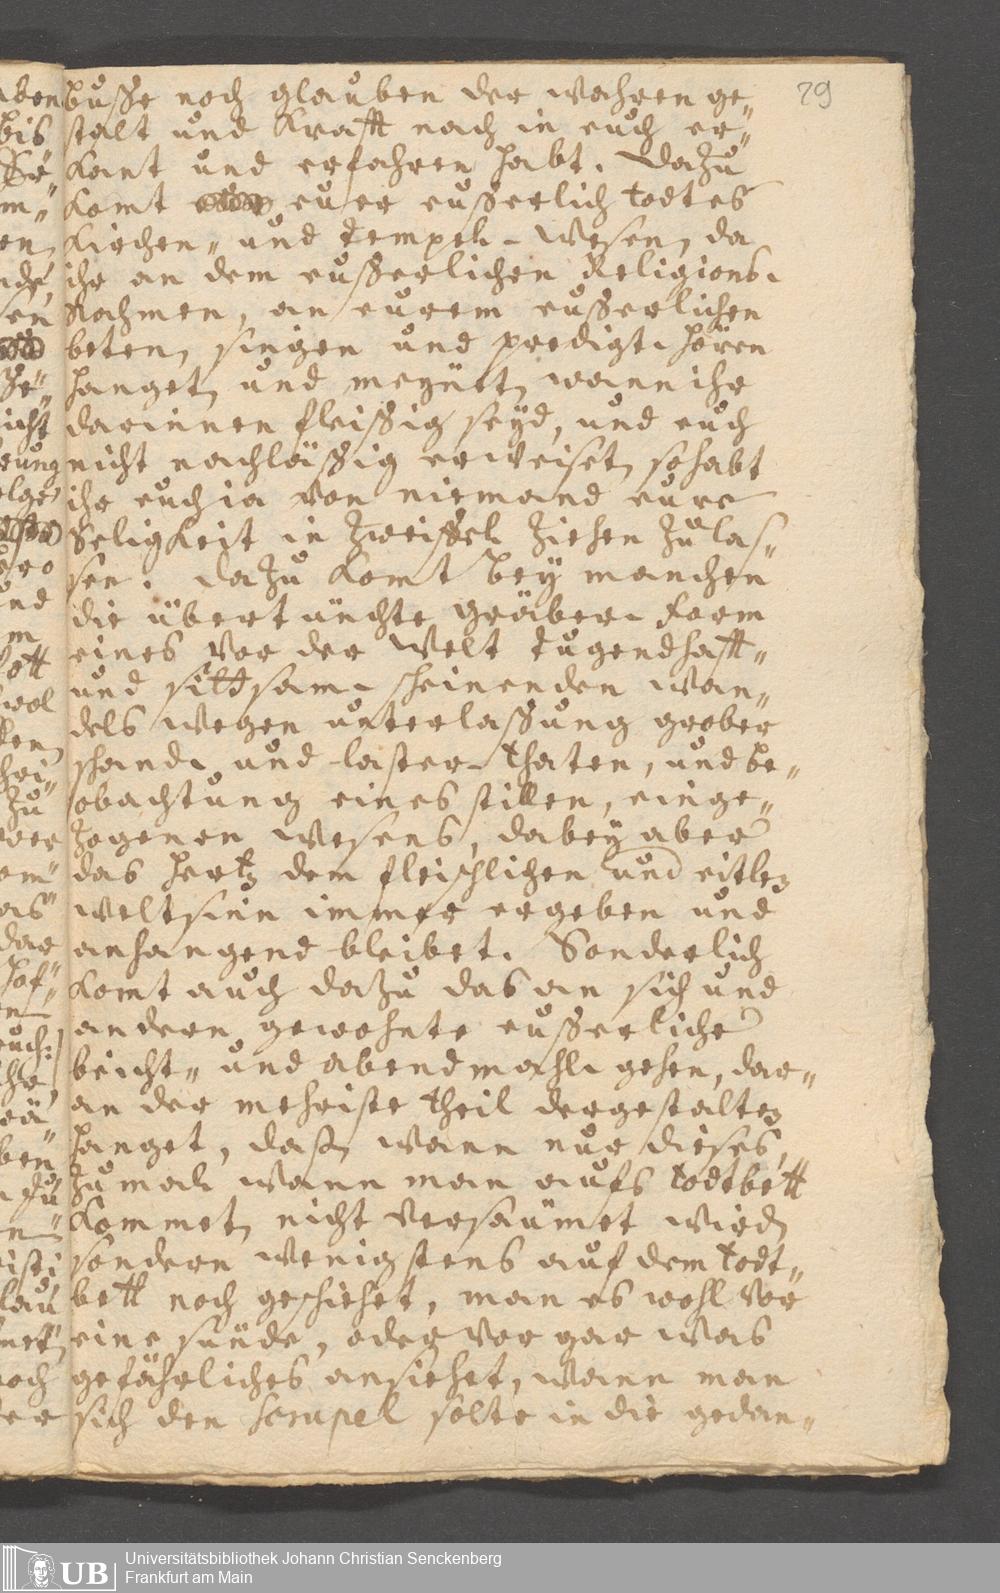 29
buße noch glauben der wahren ge„
stalt und Krafft nach in euch er„
Kant und erfahren habt. Dazu
Komt euer eußerlich todtes
Kirchen„ und tempel-wesen, da
ihr an dem eußerlichen Religions-
Nahmen, an eurem eußerlichen
beten, singen und predigt-hören
hanget, und meynet, wann ihr
darinnen fleißig seyd, und euch
nicht nachläßig erweiset, so habt
ihr euch ia von niemand eure
Seligkeit in Zweiffel Ziehen Zu las„
sen. Dazu Komt bey manchen
die übertünchte gräber-Form
eines vor der Welt tugendhafft„
und sittsam-scheinenden wan„
dels wegen unterlaßung grober
schand- und laster-thaten, und be„
obachtung eines stillen, einge„
Zogenen wesens, dabey aber
das hertz dem fleischlichen und eitlen
weltsinn immer ergeben und
anhangend bleibet. Sonderlich
Komt auch dazu das an sich und
andern gewohnte eußerliche
beicht„ und abendmahl-gehen, dar„
an der mehriste theil dergestalten
hanget, daß, wann nur dieses,
Zumal wann man aufs todtbett
Kommet, nicht versäumet wird,
sondern wenigstens auf dem todt„
bett noch geschiehet, man es wohl vor
eine sünde, oder vor gar was
gefährliches ansiehet, wann man
sich den Scrupel solte in die gedan„
UB
Universitätsbibliothek Johann Christian Senckenberg
Frankfurt am Main